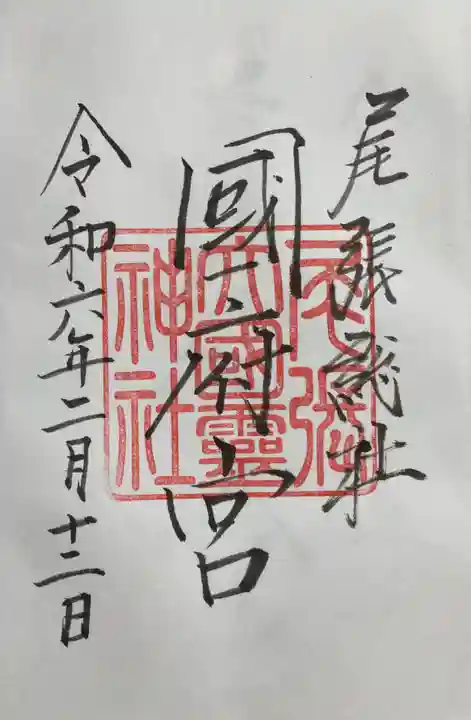 尾張総社
國府宮
令和六年二月十二日
尾張
大國靈
神社